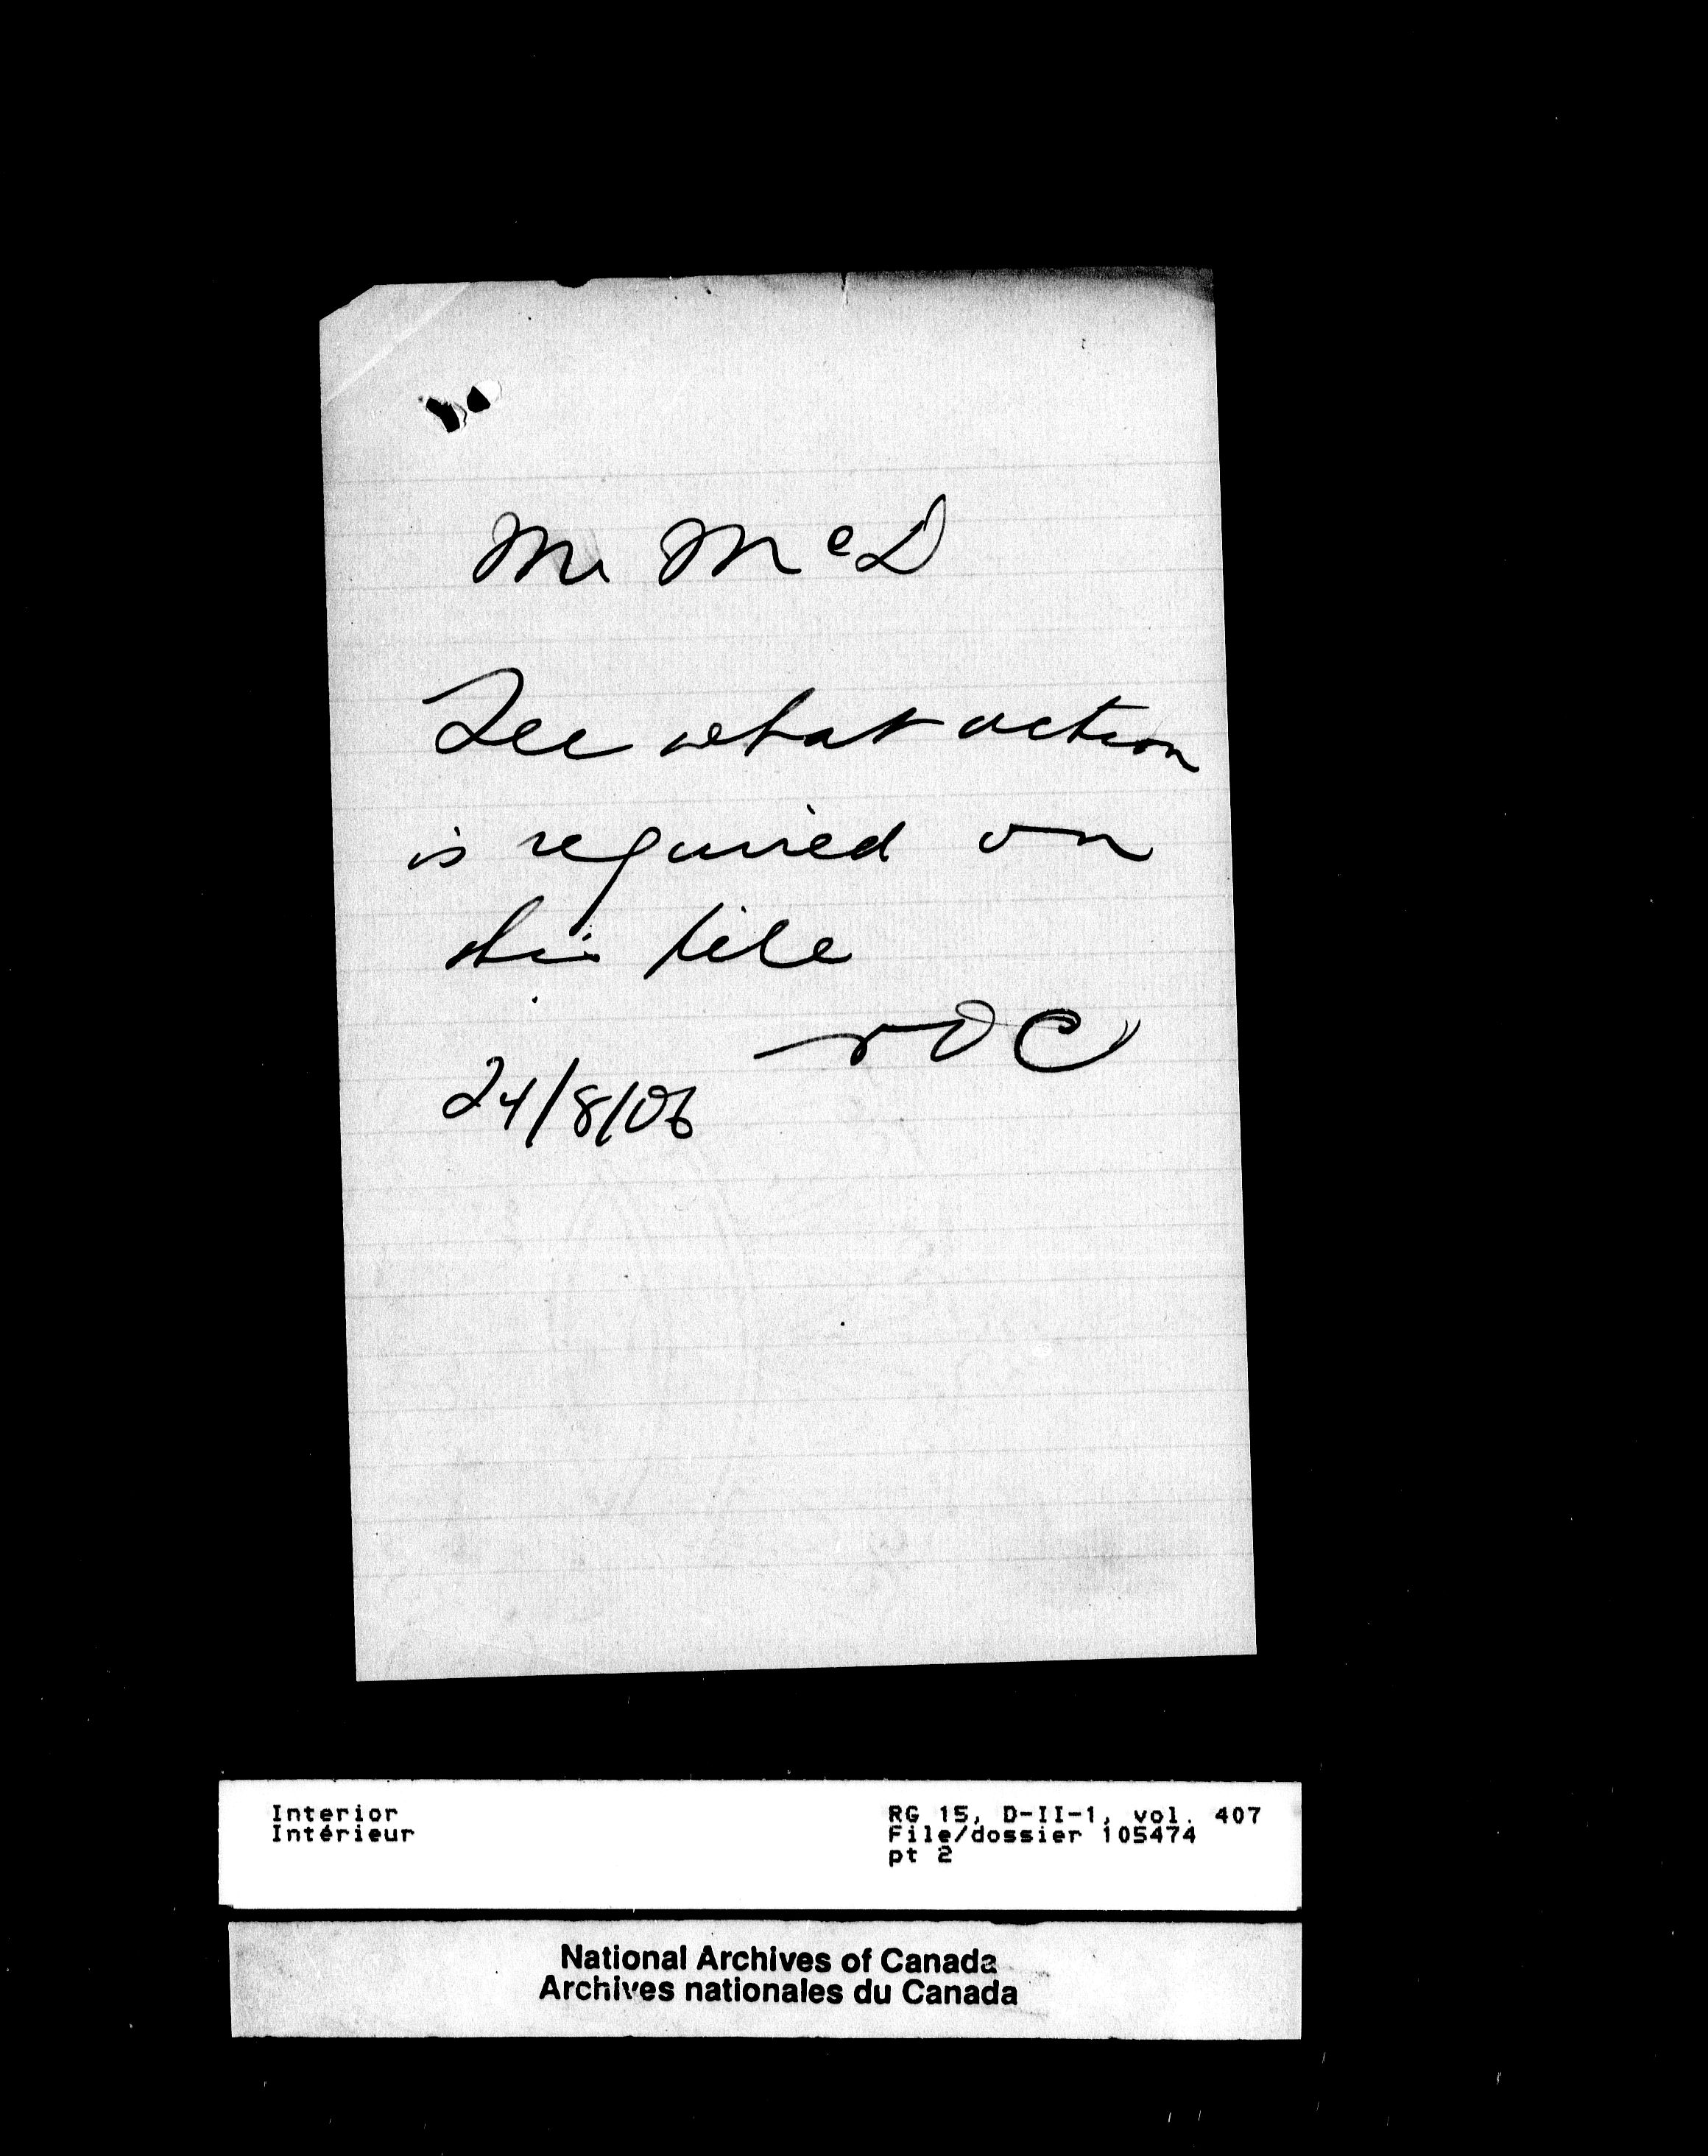 Mr McD
See what action
is required on
this file
24/8/06
Interior
Intérieur
RG 15, D-II-1, vol. 407
File/dossier 105474
pt 2
National Archives of Canada
Archives nationales du Canada